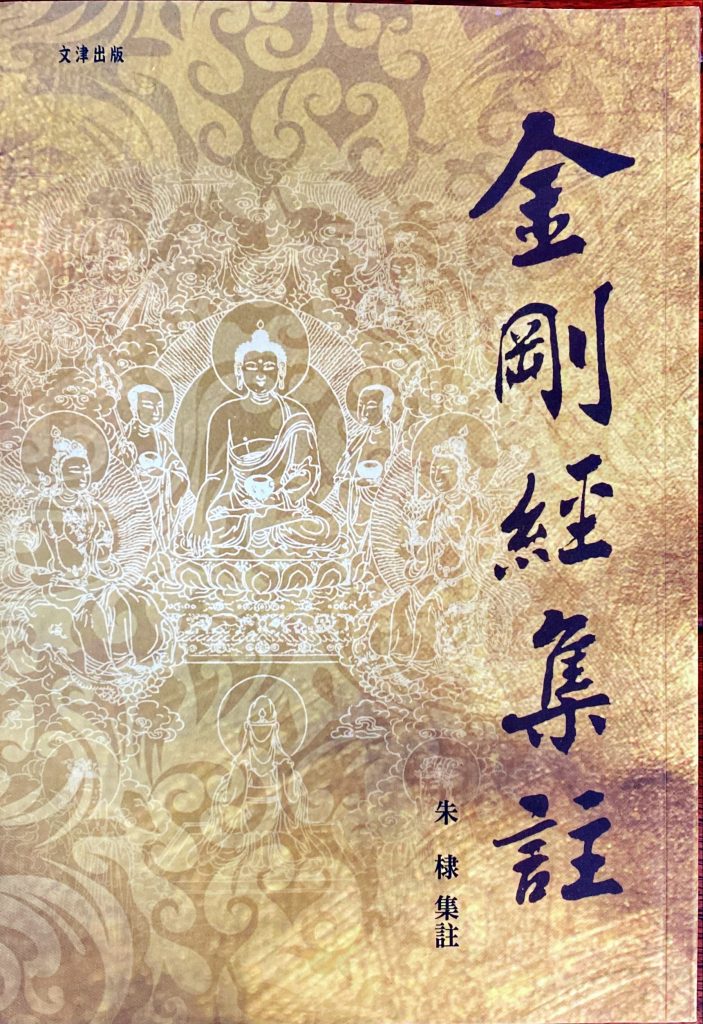 文津出版
金剛經集註
朱棣集註